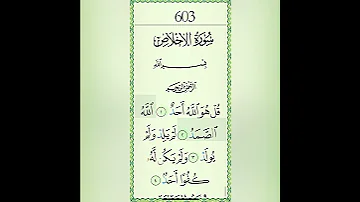 603
سُورَةُ الإِخْلَاصِ
بِسْمِ اللَّهِ
الرَّحْمَٰنِ الرَّحِيمِ
قُلْ هُوَ اللَّهُ أَحَدٌ ١ اللَّهُ
الصَّمَدُ ٢ لَمْ يَلِدْ وَلَمْ
يُولَدْ ٣ وَلَمْ يَكُن لَّهُ
كُفُوًا أَحَدٌ ٤